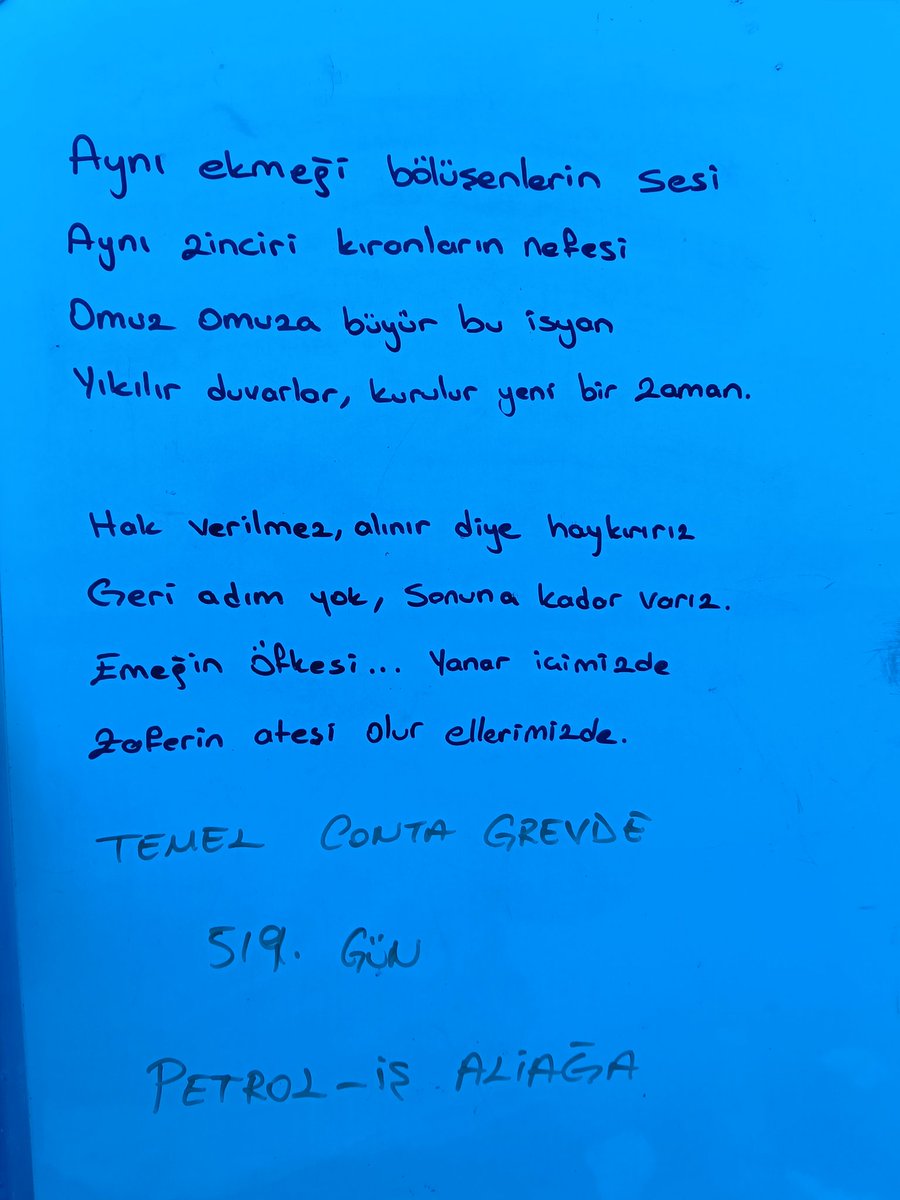 Aynı ekmeği bölüşenlerin sesi
Aynı zinciri kıranların nefesi
Omuz omuza büyür bu isyan
Yıkılır duvarlar, kurulur yeni bir zaman.
Hak verilmez, alınır diye haykırırız
Geri adım yok, Sonuna kadar varız.
Emeğin Öfkesi... Yanar içimizde
Zaferin ateşi olur ellerimizde.
TEMEL CONTA GREVDE
519. GÜN
PETROL-İŞ ALİAĞA